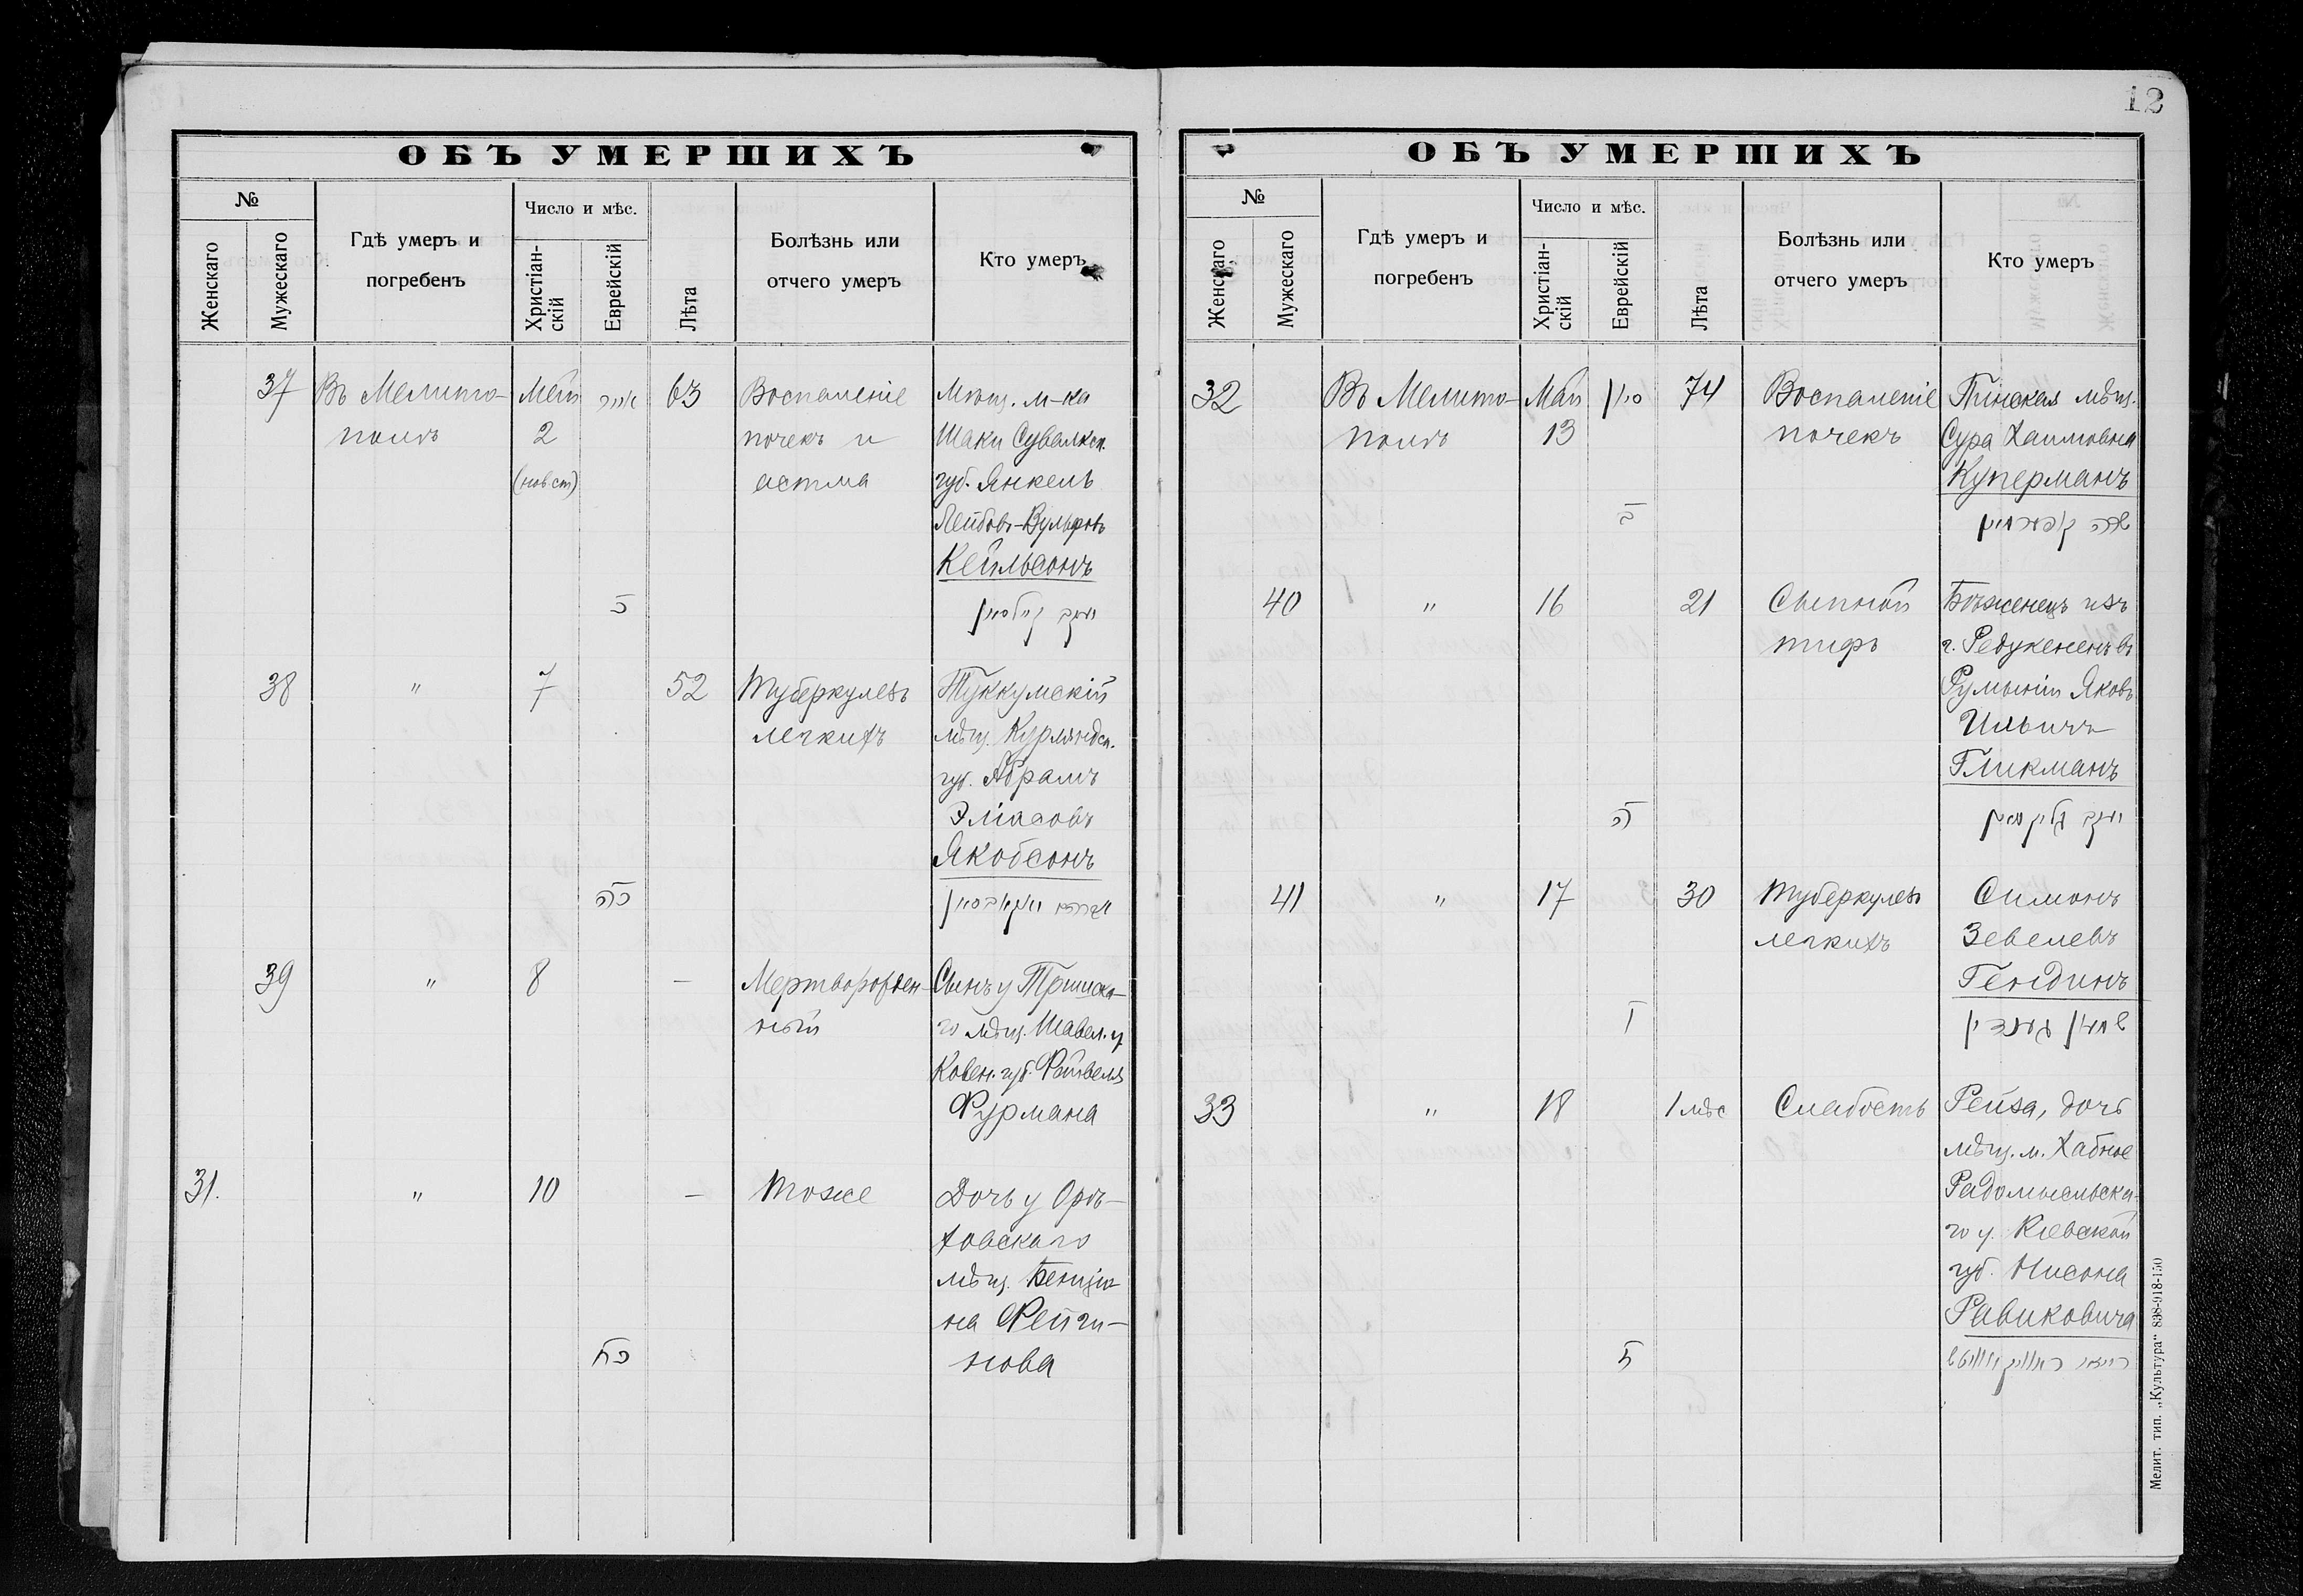 12
ОБЪ УМЕРШИХЪ
№
Женскаго
Мужескаго
Гдѣ умеръ и
погребенъ
Число и мѣс.
Христіан-
скій
Еврейскій
Лѣта
Болѣзнь или
отчего умеръ
Кто умеръ
37
Въ Мелито-
полѣ
Май
2
(нов ст)
אייר
63
Воспаленіе
почекъ и
астма
Мѣщ. м-ка
Шаки Сувалкск.
губ. Янкель
Лейбовъ-Вульфовъ
Кейльсонъ
38
"
7
52
Туберкулезъ
легкихъ
Туккумскій
мѣщ. Курляндск.
губ. Абрамъ
Эліасовъ
Якобсонъ
כה
39
"
8
—
Мертворожден-
ный
Сынъ у Тришска-
го мѣщ. Шавел. у
Ковен. губ. Файвеля
Фурмана
31.
"
10
—
Тоже
Дочь у Орѣ-
ховскаго
мѣщ. Бенціо-
на Фейги-
нова
כח
ОБЪ УМЕРШИХЪ
№
Женскаго
Мужескаго
Гдѣ умеръ и
погребенъ
Число и мѣс.
Христіан-
скій
Еврейскій
Лѣта
Болѣзнь или
отчего умеръ
Кто умеръ
32
Въ Мелито-
полѣ
Май
13
סיון
74
Воспаленіе
почекъ
Пинская мѣщ.
Сура Хаимовна
Куперманъ
40
"
16
21
Сыпной
тифъ
Бѣженецъ изъ
Румыніи Яковъ
Ильичъ
Гликманъ
ה
יעקב גליקמאן
41
"
17
30
Туберкулезъ
легкихъ
Симонъ
Зевелевъ
Гендинъ
ו
33
"
18
1 мѣс
Слабость
Рейза, дочь
мѣщ. м. Хабное
Радомысльска-
го у. Кіевской
губ. Нисона
Равиковича
Мелит. тип. „Культура“ 838-918-150